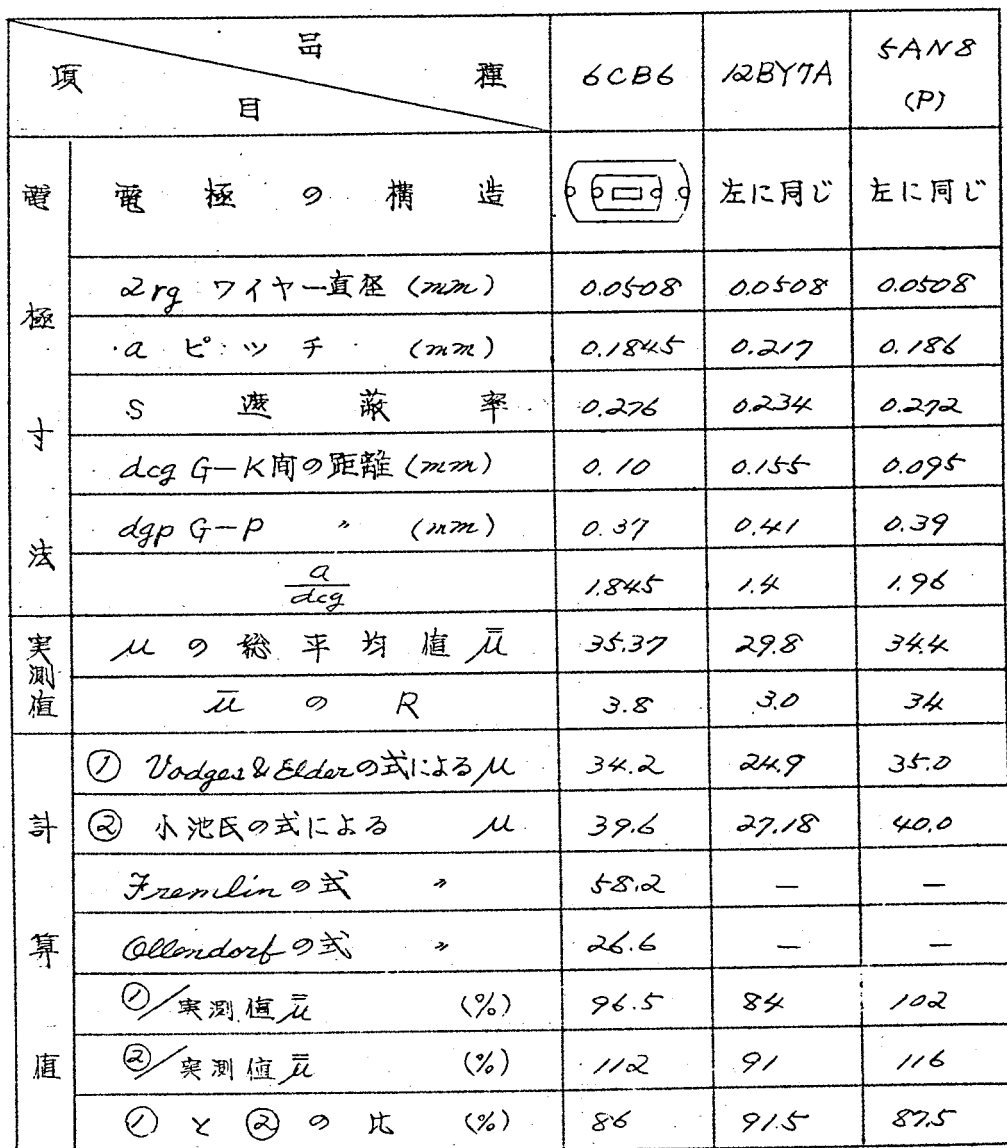 品
項 種 6CB6 12BY7A 5AN8
目 (P)
電 電極の構造 左に同じ 左に同じ
2rg ワイヤー直径 (mm) 0.0508 0.0508 0.0508
極
a ピッチ (mm) 0.1845 0.217 0.186
S 遮蔽率 0.276 0.234 0.272
寸
dcg G-K間の距離 (mm) 0.10 0.155 0.095
dgp G-P 〃 (mm) 0.37 0.41 0.39
法
a/dcg 1.845 1.4 1.96
実測値 μの総平均値 μ̿ 35.37 29.8 34.4
μ̄ の R 3.8 3.0 34
① Vodges & Elderの式によるμ 34.2 24.9 35.0
計 ② 小池氏の式による μ 39.6 27.18 40.0
Fremlinの式 〃 58.2 — —
算 Ollendorfの式 〃 26.6 — —
①/実測値μ̿ (%) 96.5 84 102
値 ②/実測値μ̿ (%) 112 91 116
①と②の比 (%) 86 91.5 87.5